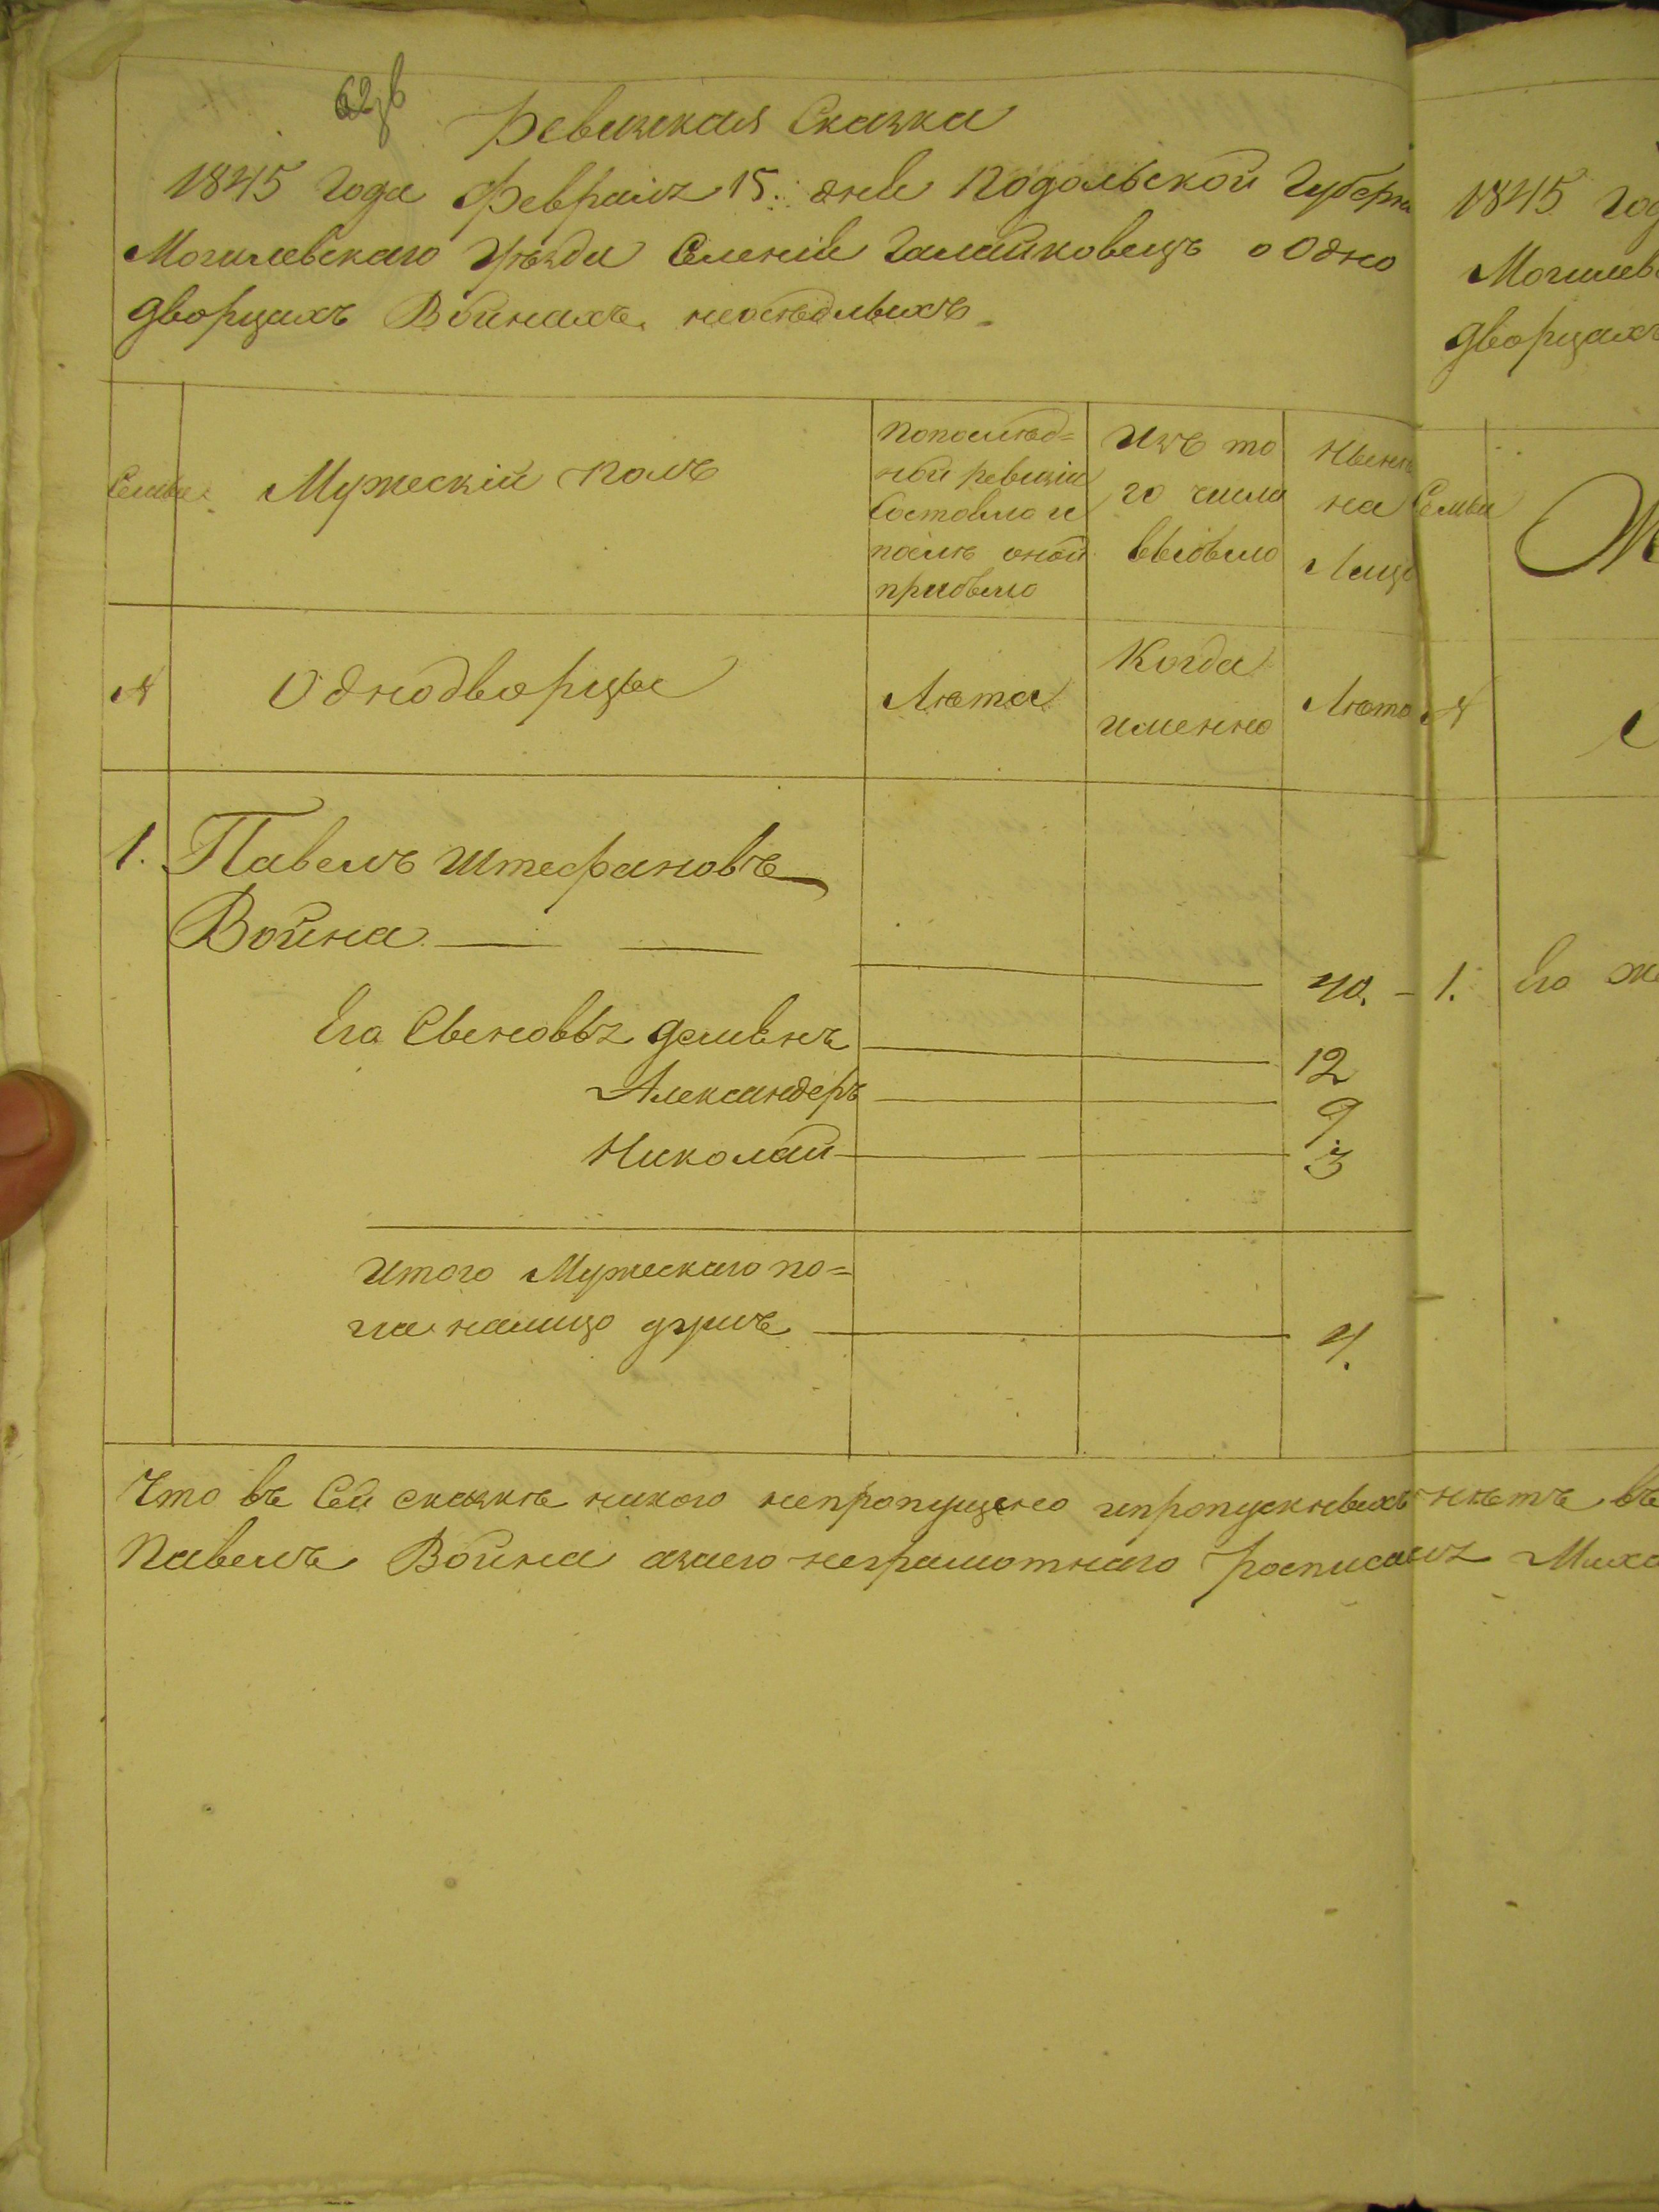 Ревизкая Сказка
1845 Года Февраля 15. дня Подольской Губерни
Могилевскаго Уѣзда Селеніи Галайковецъ о Одно
дворцахъ Войнахъ неосѣдлыхъ
Семьи
Мужескій полъ
попослѣд=
ной ревизіи
Состояло и
послѣ оной
прибыло
Изъ то
го числа
выбыло
Нынѣ
на
Лицо
№
Однодворцы
Лѣта
Когда
именно
Лѣта
1. Павелъ Штефановъ
Война 40.
Его Сыновья 12
Александеръ 9
Николай 3
Итого Мужескаго по=
ла налицо душъ 4.
Что въ Сей сказкѣ никого непропущено ипропускныхъ нѣтъ въ
Павелъ Война азаего неграмотнаго росписался Миха
1845 Год
Могилев
дворцахъ
Семьи
№
1. Его же